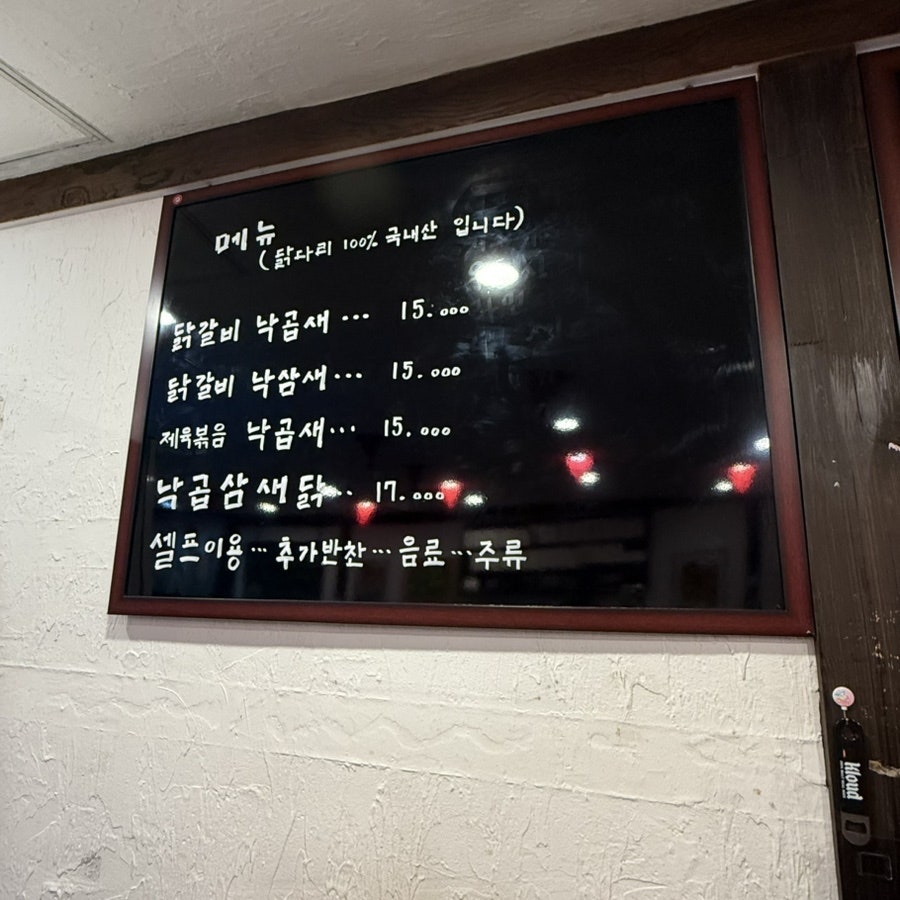 메뉴
(닭다리 100% 국내산 입니다)
닭갈비 낙곱새... 15.000
닭갈비 낙삼새... 15.000
제육볶음 낙곱새... 15.000
낙곱삼새닭... 17.000
셀프이용...추가반찬...음료...주류
kloud